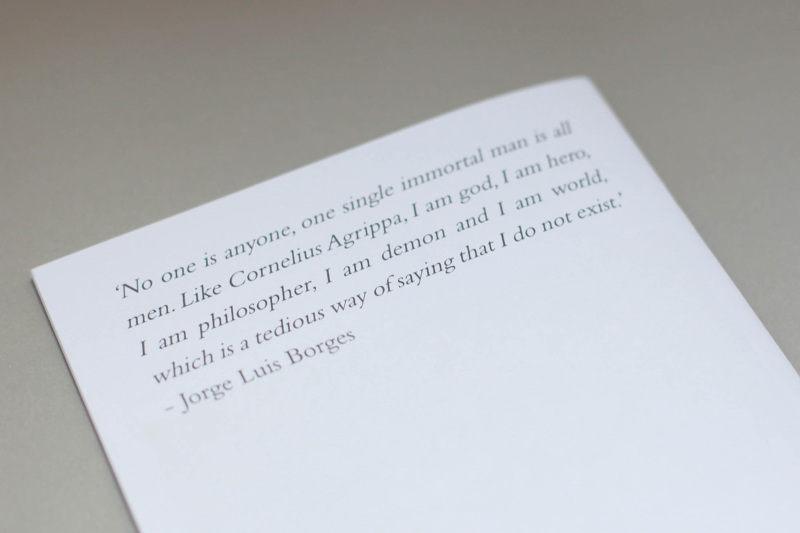 ‘No one is anyone, one single immortal man is all
men. Like Cornelius Agrippa, I am god, I am hero,
I am philosopher, I am demon and I am world,
which is a tedious way of saying that I do not exist.’
- Jorge Luis Borges